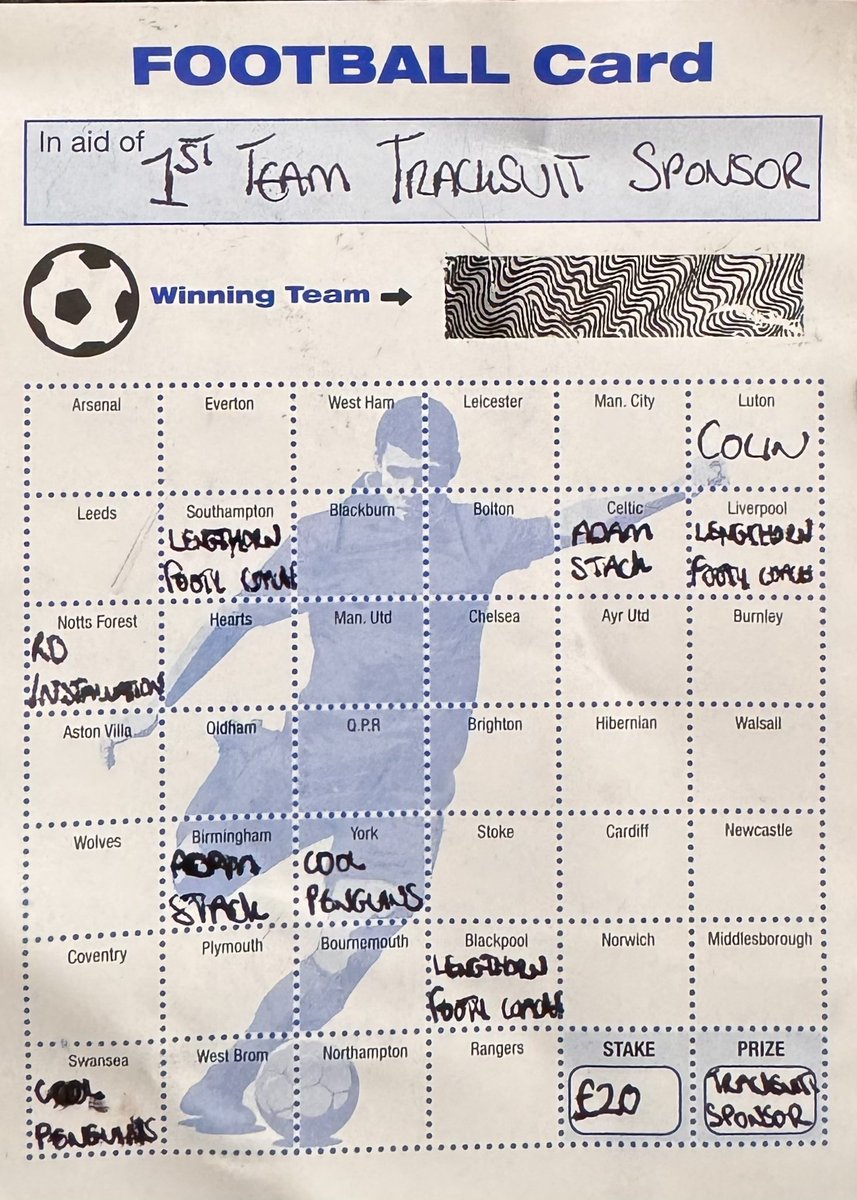 FOOTBALL Card
In aid of 1ST TEAM TRACKSUIT SPONSOR
Winning Team
Arsenal Everton West Ham Leicester Man. City Luton
COLIN
Leeds Southampton Blackburn Bolton Celtic Liverpool
LENGTHORN ADAM LENGTHORN
FOOTY COACH STACK FOOTY COACH
Notts Forest Hearts Man. Utd Chelsea Ayr Utd Burnley
RD
INSTALLATION
Aston Villa Oldham Q.P.R Brighton Hibernian Walsall
Wolves Birmingham York Stoke Cardiff Newcastle
ADAM COOL
STACK PENGUINS
Coventry Plymouth Bournemouth Blackpool Norwich Middlesborough
LENGTHORN
FOOTY COACH
Swansea West Brom Northampton Rangers STAKE PRIZE
COOL £20 TRACKSUIT
PENGUINS SPONSOR